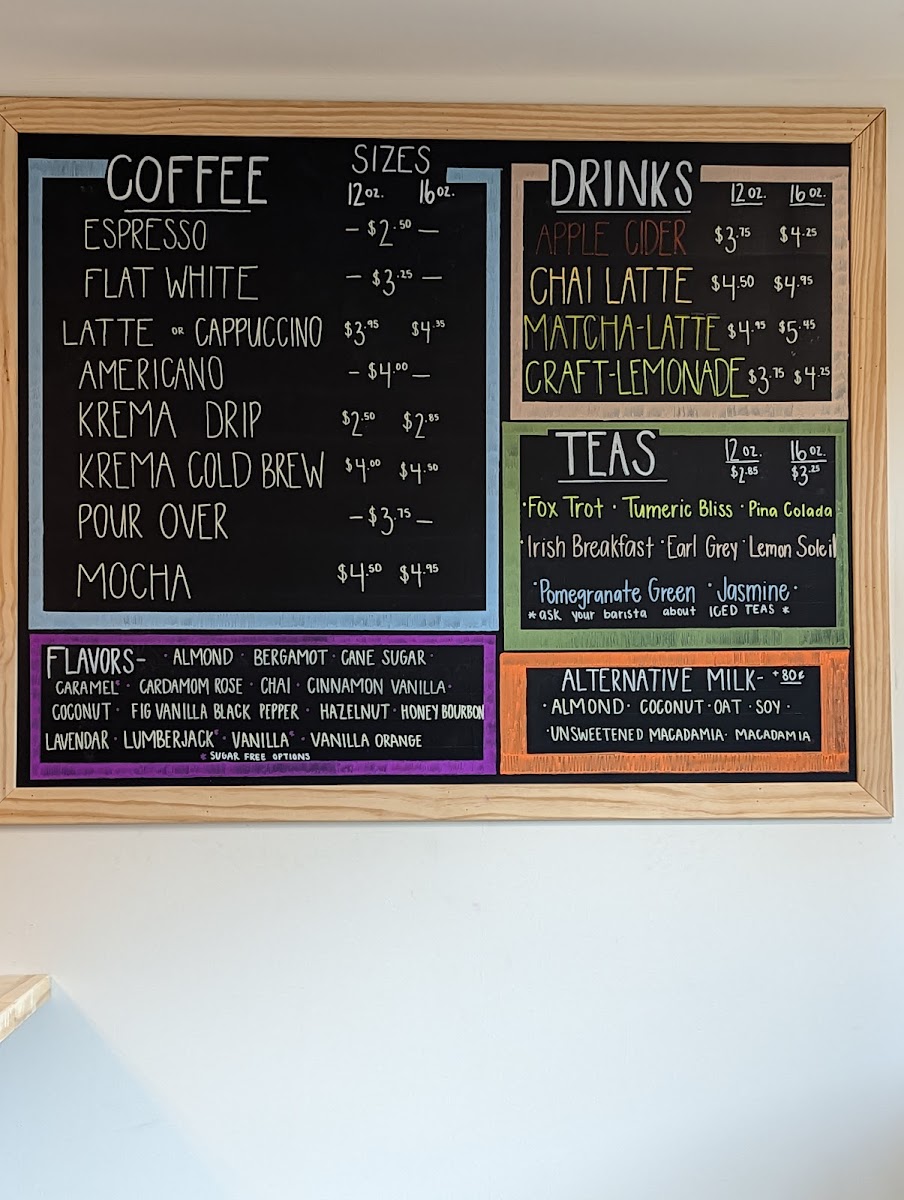 COFFEE SIZES
12oz. 16oz.
ESPRESSO - $2.50 -
FLAT WHITE - $3.25 -
LATTE OR CAPPUCCINO $3.95 $4.35
AMERICANO - $4.00 -
KREMA DRIP $2.50 $2.85
KREMA COLD BREW $4.00 $4.50
POUR OVER - $3.75 -
MOCHA $4.50 $4.95
FLAVORS- · ALMOND · BERGAMOT · CANE SUGAR ·
CARAMEL* · CARDAMOM ROSE · CHAI · CINNAMON VANILLA ·
COCONUT · FIG VANILLA BLACK PEPPER · HAZELNUT · HONEY BOURBON
LAVENDAR · LUMBERJACK* · VANILLA* · VANILLA ORANGE
* SUGAR FREE OPTIONS
DRINKS 12oz. 16oz.
APPLE CIDER $3.75 $4.25
CHAI LATTE $4.50 $4.95
MATCHA-LATTE $4.95 $5.45
CRAFT-LEMONADE $3.75 $4.25
TEAS 12oz. 16oz.
$2.85 $3.25
· Fox Trot · Tumeric Bliss · Pina Colada
· Irish Breakfast · Earl Grey · Lemon Soleil
· Pomegranate Green · Jasmine ·
* ask your barista about ICED TEAS *
ALTERNATIVE MILK- +80¢
· ALMOND · COCONUT · OAT · SOY ·
· UNSWEETENED MACADAMIA · MACADAMIA